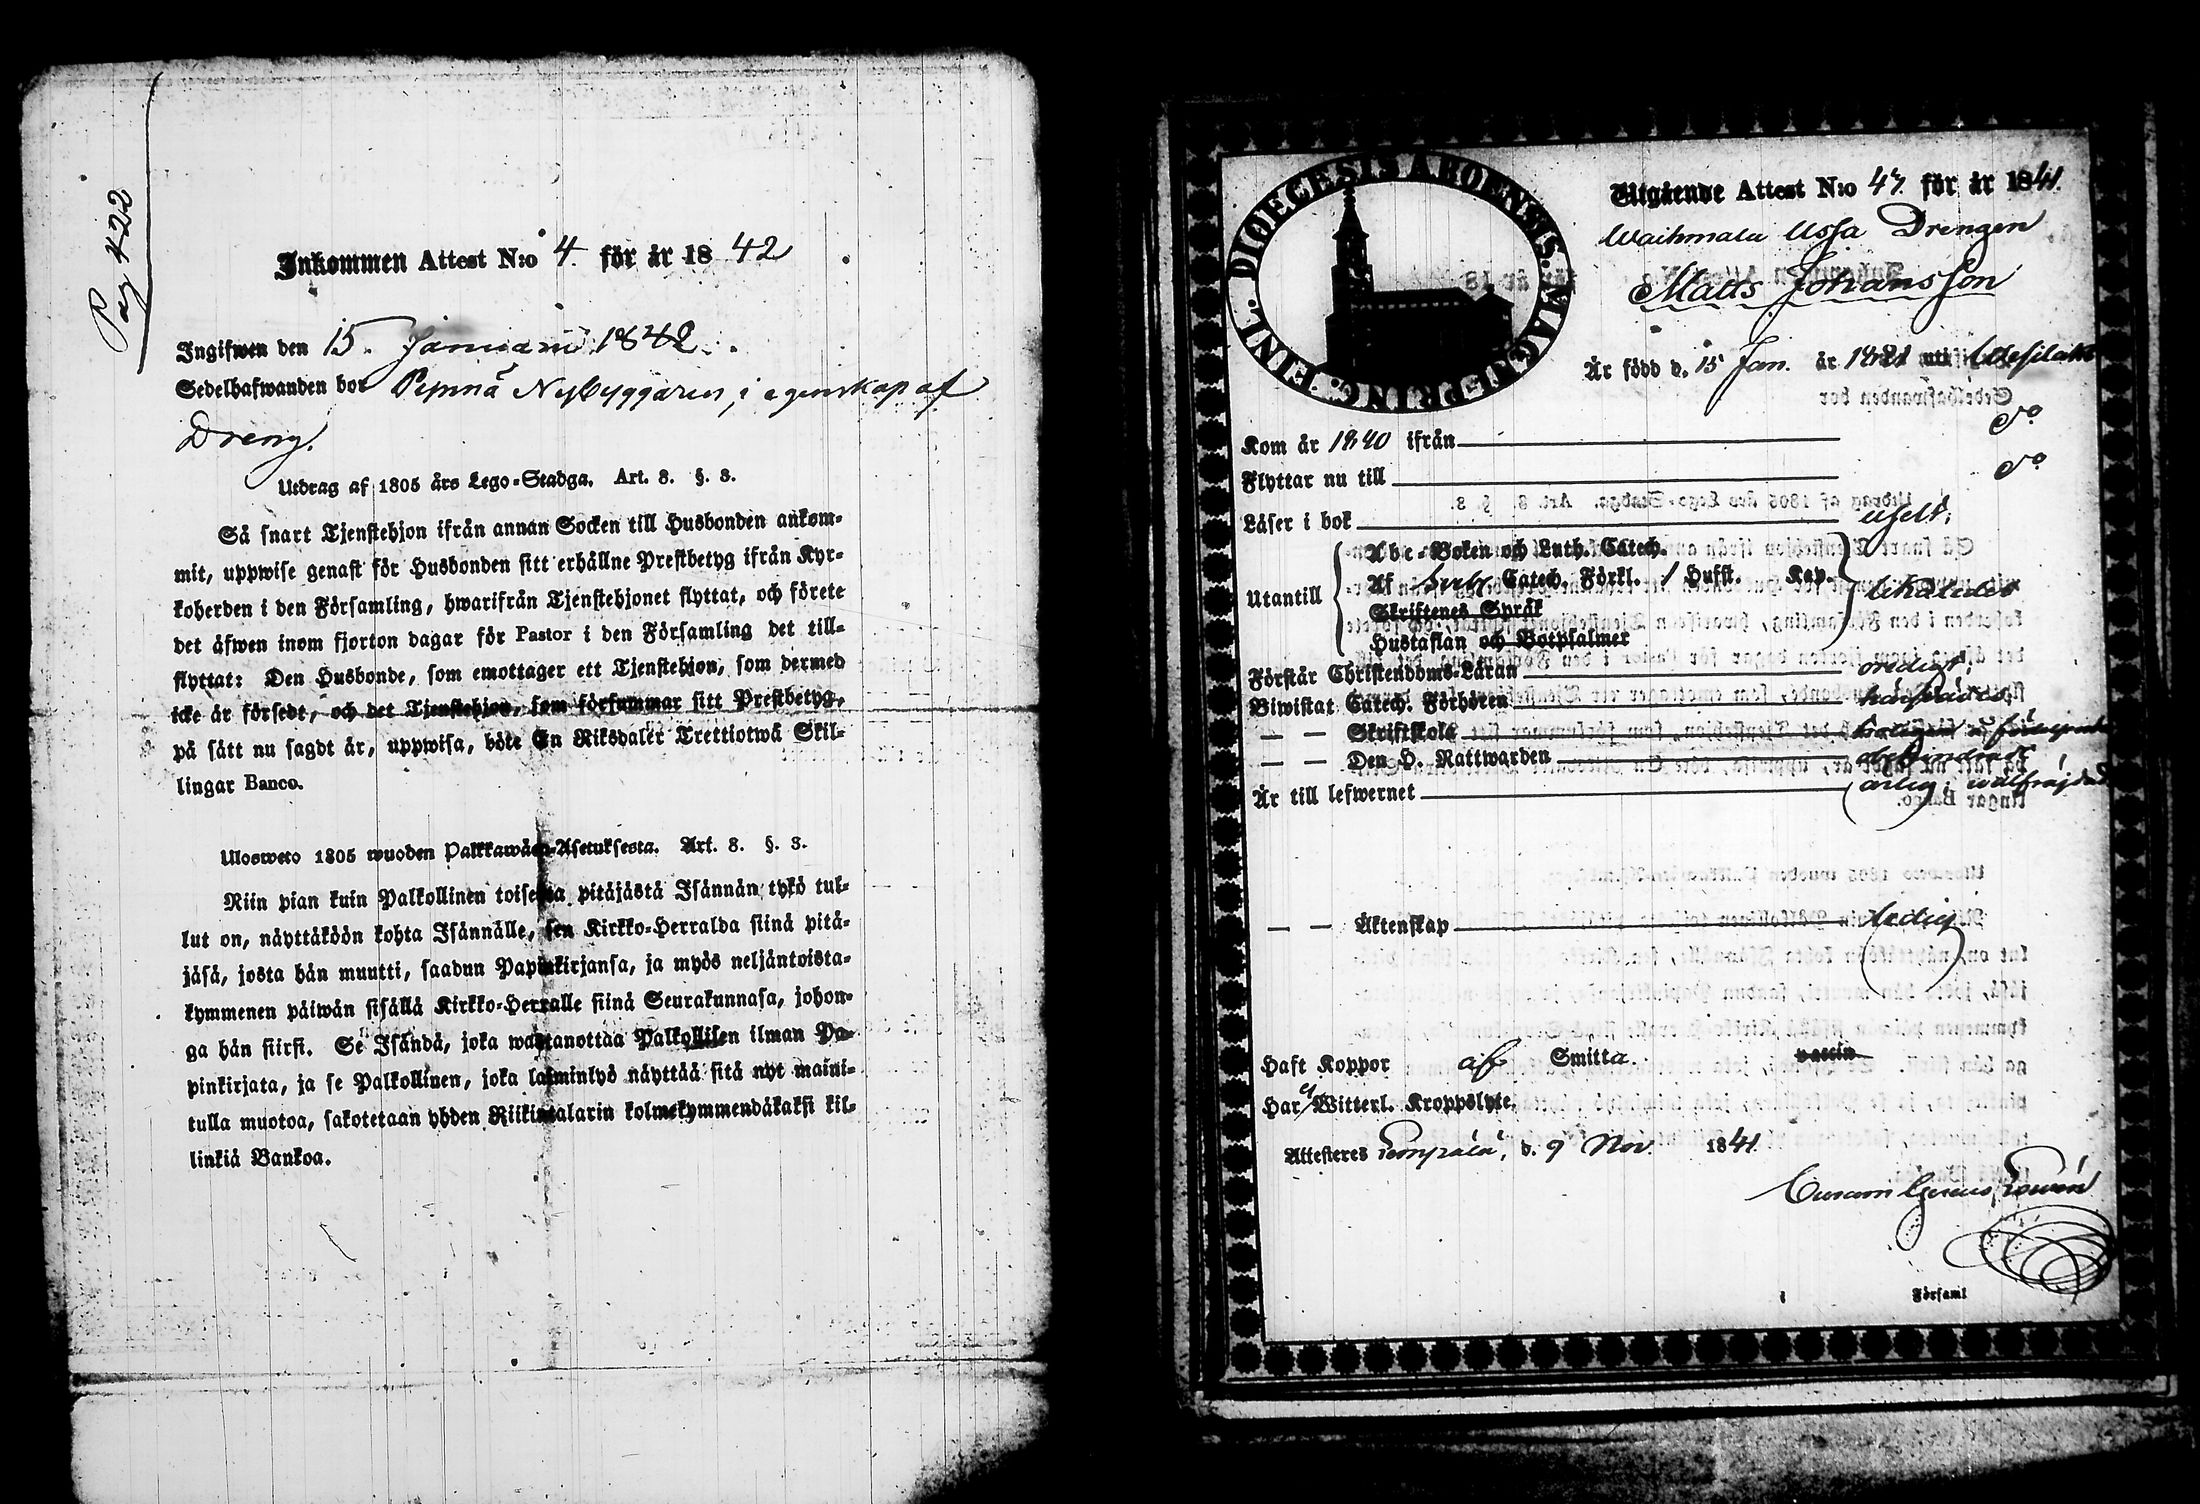 Pag 422
Inkommen Attest N:o 4. för år 1842
Ingifwen den 15. Januarii 1842.
Sedelhafwanden bor Pipnnä Nybyggaren, i egenskap af
Dreng.
Utdrag af 1805 års Lego-Stadga. Art. 8. §. 3.
Så snart Tjenstehjon ifrån annan Socken till Husbonden ankom-
mit, uppwise genast för Husbonden sitt erhållne Prestbetyg ifrån Kyr-
koherden i den Församling, hwarifrån Tjenstehjonet flyttat, och förete
det äfwen inom fjorton dagar för Pastor i den Församling det till-
flyttat: Den Husbonde, som emottager ett Tjenstehjon, som dermed
icke är försedt, och det Tjenstehjon, som försummar sitt Prestbetyg,
på sätt nu sagdt är, uppwisa, böte En Riksdaler Trettiotwå Skil-
lingar Banco.
Ulosweto 1805 wuoden Palkkawäen-Asetuksesta. Art. 8. §. 3.
Niin pian kuin Palkollinen toisesta pitäjästä Isännän tykö tul-
lut on, näyttäköön kohta Isännälle, sen Kirkko-Herralda siinä pitä-
jäsä, josta hän muutti, saadun Papinkirjansa, ja myös neljäntoista-
kymmenen päiwän sisällä Kirkko-Herralle siinä Seurakunnasa, johon-
ga hän siirsi. Se Isändä, joka wastanottaa Palkollisen ilman Pa-
pinkirjata, ja se Palkollinen, joka laiminlyö näyttää sitä nyt maini-
tulla muotoa, sakotetaan yhden Riikintalarin kolmekymmendäkaksi kil-
linkiä Bankoa.
DIOECESIS ABOENSIS. MAGJ: PRINC: FINL.
Utgående Attest N:o 47 för år 1841.
Waihmala Ussa Drengen
Matts Johansson
Är född d. 15 Jan. år 1821 uti Wesilaks
Kom år 1840 ifrån do
Flyttar nu till do
Läser i bok
Utantill
Abc-Boken och Luth. Catech.
Af Catech. Förkl. / Husst. Kap.
Skriftenes Språk
Hustaflan och Botpsalmer
likaledes
Förstår Christendoms-Läran
Biwistat Catech. Förhören
— — Skriftskola
— — Den H. Nattwarden
Är till lefwernet ärlig, wälfräjdad
— — Äktenskap ledig
Haft Koppor af Smitta. vaccin
Har ej Witterl. Kroppslyte
Attesteres Lempälä, d. 9 Nov. 1841
Curam Gerens,
i Församl